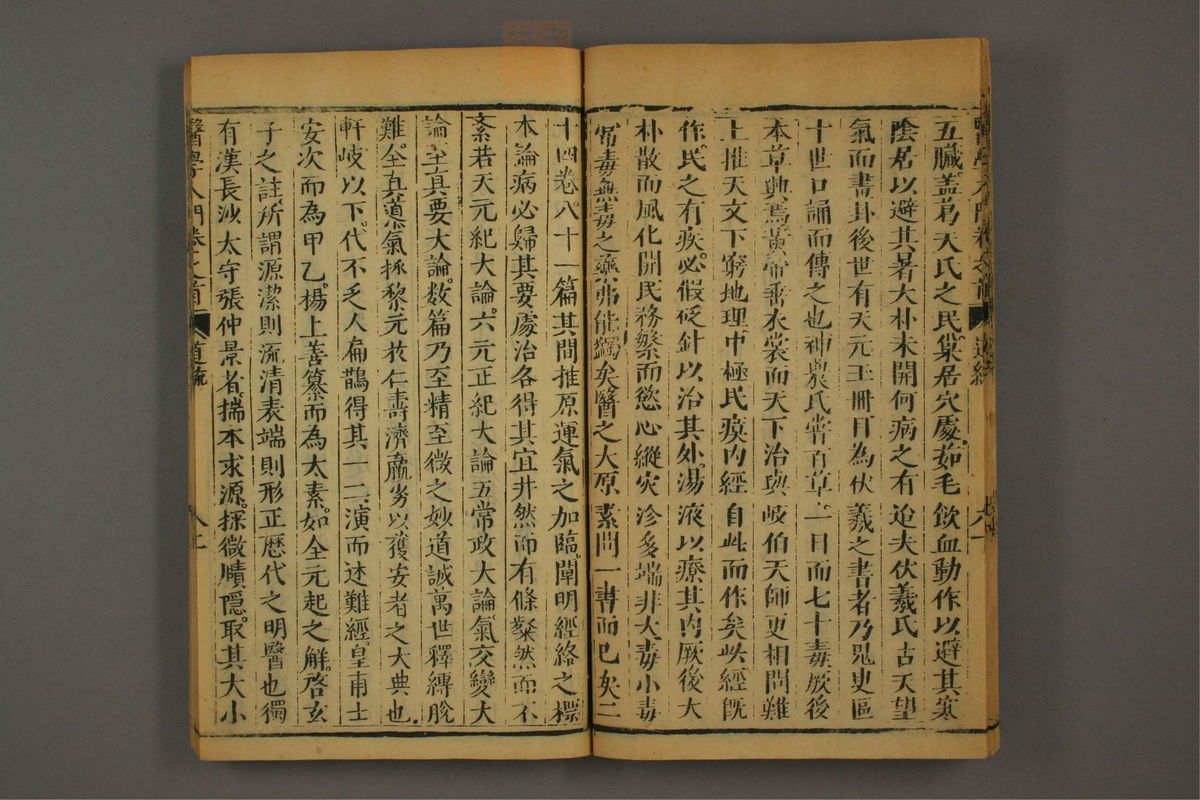 醫學入門卷之首 道統 八一
五臟蓋葛天氏之民巢居穴處茹毛飲血動作以避其寒
陰居以避其暑大朴未開何病之有迨夫伏羲氏古天望
氣而畫卦後世有天元玉冊目為伏羲之書者乃鬼臾區
十世口誦而傳之也神農氏嘗百草一日而七十毒厥後
本草興焉黃帝垂衣裳而天下治與岐伯天師更相問難
上推天文下窮地理中極民瘼內經自此而作矣此經既
作民之有疾必假砭針以治其外湯液以療其內厥後大
朴散而風化開民務繁而慾心縱灾沴多端非大毒小毒
常毒無毒之藥弗能蠲矣醫之大原素問一書而已矣二
十四卷八十一篇其間推原運氣之加臨闡明經絡之標
本論病必歸其要處治各得其宜井然而有條粲然而不
紊若天元紀大論六元正紀大論五常政大論氣交變大
論至真要大論數篇乃至精至微之妙道誠萬世釋縛脫
難全真導氣拯黎元於仁壽濟羸劣以獲安者之大典也
軒岐以下代不乏人扁鵲得其一二演而述難經皇甫士
安次而為甲乙楊上善纂而為太素如全元起之解啓玄
子之註所謂源潔則流清表端則形正歷代之明醫也獨
有漢長沙太守張仲景者揣本求源探微賾隱取其大小
醫學入門卷之首 道統 八二